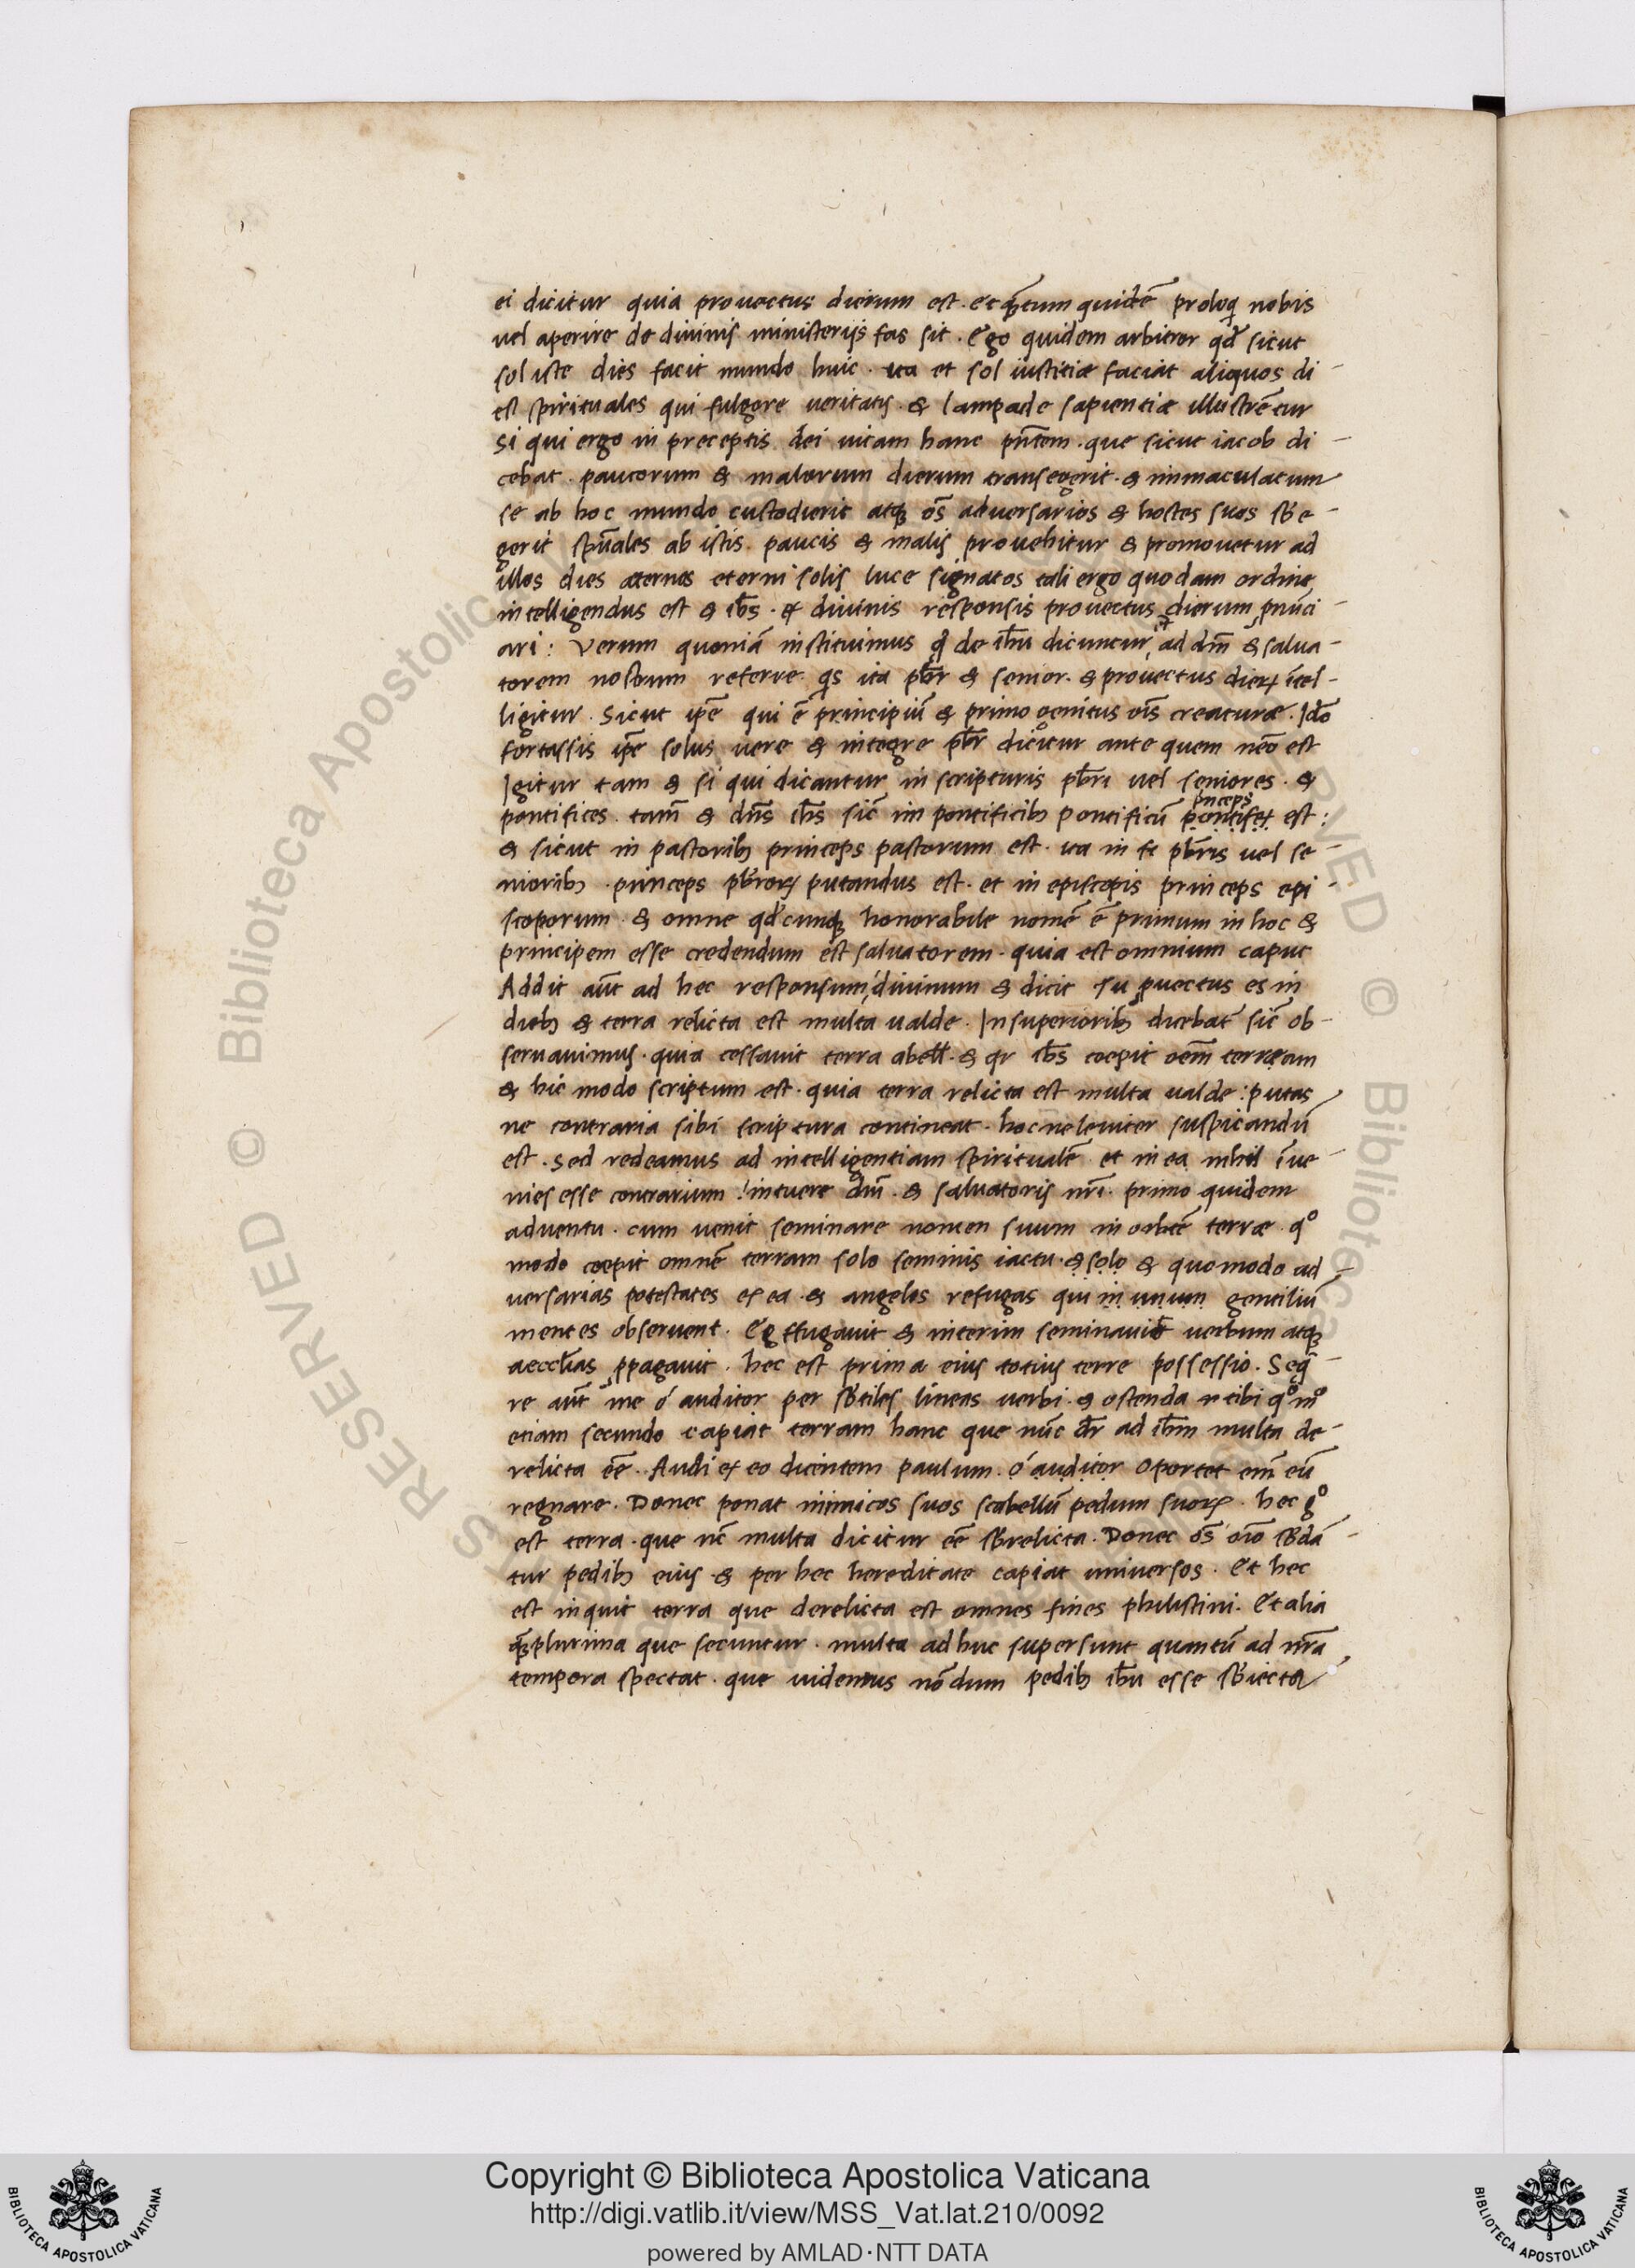 ei dicitur quia prouectus dierum est. et q̄tum quidē proloq̄ nobis
uel aperire de diuinis ministerijs fas sit. Ego quidem arbitror qd̄ sicut
sol iste dies facit mundo huic. ita et sol iustitiæ faciat aliquos di-
es spirituales qui fulgore ueritatis. & lampade sapientiæ illustrētur
si qui ergo in preceptis dei uitam hanc pn̄tem. que sicut iacob di-
cebat. paucorum & malorum dierum transegerit. & immaculatum
se ab hoc mundo custodierit atq; oēs aduersarios & hostes suos sb̄e-
gerit spūales ab istis. paucis & malis prouehitur & promouetur ad
illos dies æternos eterni solis luce signatos tali ergo quodam ordine
intelligendus est & ih̄s. ex diuinis responsis prouectus dierum pnūci-
ari: Verum quoniā instituimus q̄ de ih̄u dicuntur, ad dn̄m & salua-
torem nostrum referre. q̄s ita pb̄r & senior. & prouectus dieꝝ ītel-
ligitur. Sicut ip̄e qui ē principiū & primogenitus oīs creaturæ. Idō
fortassis ip̄e solus uere & integre pb̄r dicitur ante quem nēo est
Igitur tam & si qui dicantur in scripturis pb̄ri uel seniores. &
pontifices. tam̄ & dn̄s ih̄s sic̄ im pontificib; pontificū pontifex est:
pnceps
& sicut in pastorib; princeps pastorum est. ita in te pb̄ris uel se-
niorib;. princeps pb̄roꝝ putandus est. et in episcopis princeps epi-
scoporum. & omne qd̄cunq; honorabile nomē ē primum in hoc &
principem esse credendum est saluatorem. quia est omnium caput
Addit aūt ad hec responsum, diuinum & dicit Tu ꝓuectus es in
dieb; & terra relicta est multa ualde. In superiorib; dicebat̄ sic̄ ob-
seruauimus. quia cessauit terra abell̄. & qr̄ ih̄s coepit oēm terram
& hic modo scriptum est. quia terra relicta est multa ualde: putas
ne contraria sibi scriptura contineat. hoc ne leuiter suspicandū
est. Sed redeamus ad intelligentiam spiritualē. et in ea nihil īue-
nies esse contrarium! intuere dn̄i. & saluatoris nr̄i. primo quidem
aduentu. cum uenit seminare nomen suum in orbē terræ. qº
modo coepit omnē terram solo seminis iactu. & solo & quomodo ad-
uersarias potestates ex ea. & angelos refugas qui in unum gentiliū
mentes obseruent. Effugauit & interim seminauit uerbum atq;
aeccl̄ias ꝓpagauit. hec est prima eius totius terre possessio. Seq̄-
re aūt me ó auditor per sb̄tiles lineas uerbi. & ostendam tibi qº mº
etiam secundo capiat terram hanc que nūc dr̄ ad ih̄m multa de-
relicta eē. Audi ex eo dicentem paulum. ó auditor oportet em̄ eū
regnare. Donec ponat inimicos suos scabellū pedum suoꝝ. hec gº
est terra. que nc̄ multa dicitur eē sb̄relicta. Donec oēs oīo sb̄dā-
tur pedib; eius & per hec hereditate capiat uniuersos. Et hec
est inquit terra que derelicta est omnes fines philistini. Et alia
q̄plurima que secuntur. multa adhuc supersunt quantū ad nr̄a
tempora spectat. que uidemus nōdum pedib; ih̄u esse sb̄iecta
Copyright © Biblioteca Apostolica Vaticana
http://digi.vatlib.it/view/MSS_Vat.lat.210/0092
powered by AMLAD·NTT DATA
BIBLIOTECA APOSTOLICA VATICANA
BIBLIOTECA APOSTOLICA VATICANA